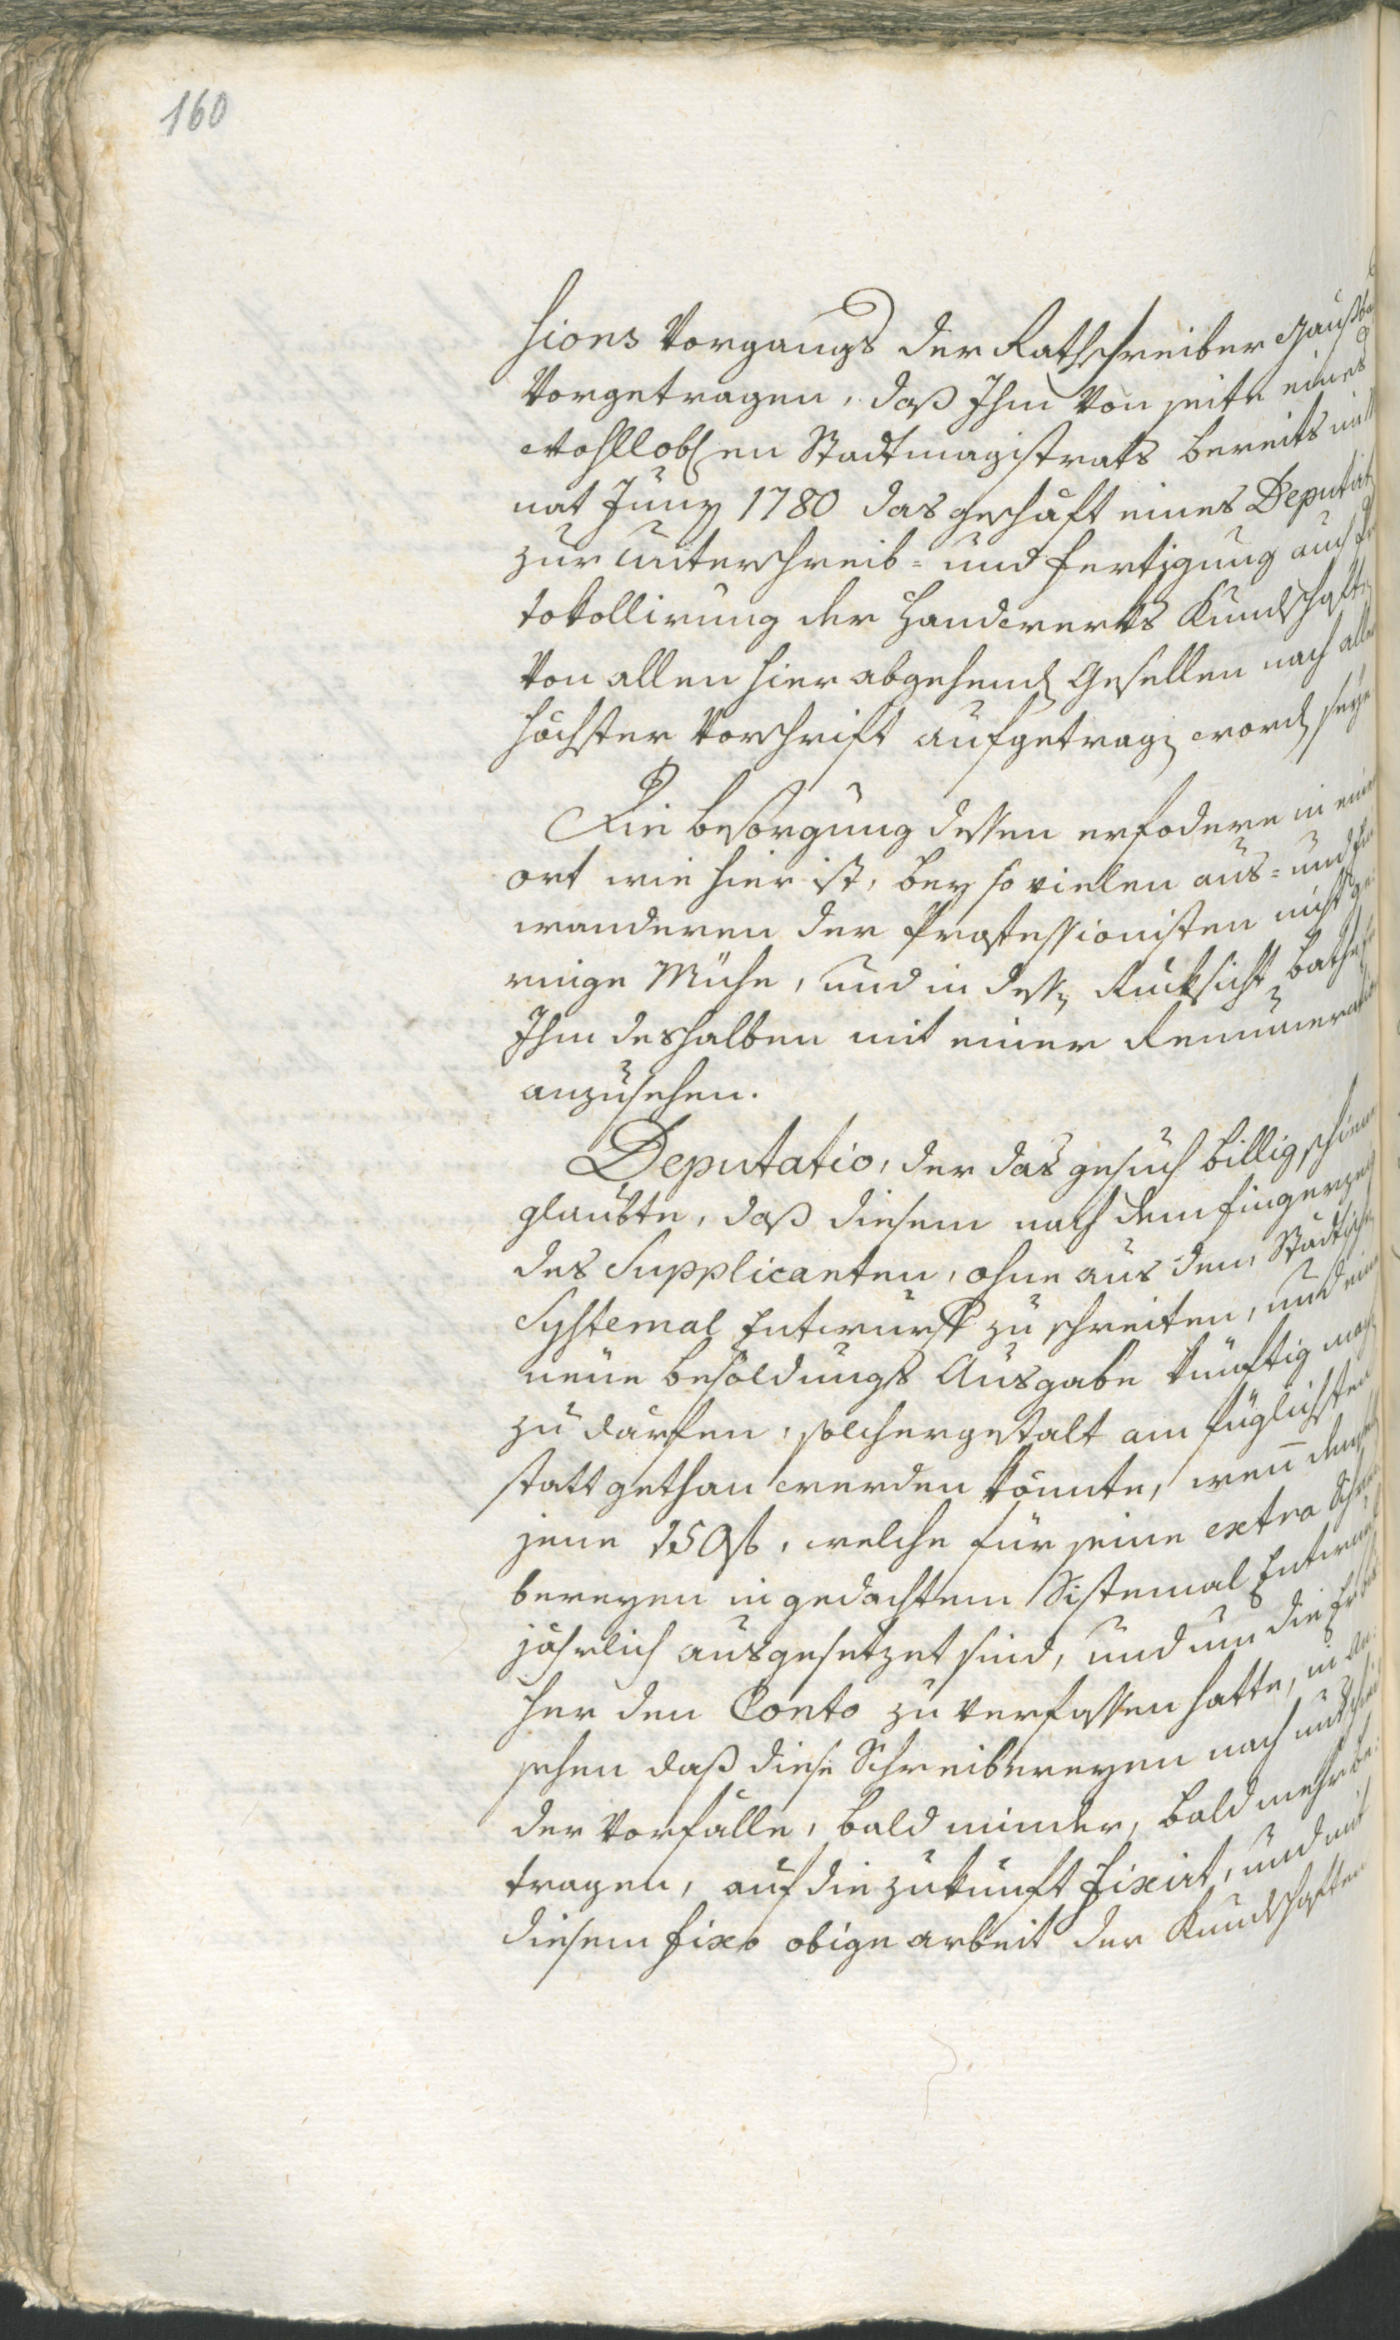 160
sions Vorgangs der Rathschreiber
Vorgetragen, daß Ihm Von seite eines
wohllobl.en Stadtmagistrats bereits
nat Juny 1780 das geschäft eines Deputirt
zur unterschreib- und fertigung auch Pro
tokollirung der Handwerks Kundschaften
Von allen hier abgehend Gesellen nach aller
höchster Vorschrift aufgetragen word seye
Die besorgung dessen erfodere in einem
ort wie hier ist, bey so vielen aus- und ein
wanderen der Professionisten nicht ge-
ringe Mühe, und in dessen Rücksicht bathe
Ihm deshalben mit einer Remuneration
anzusehen.
Deputatio, der das gesuch billig schiene
glaubte, daß diesem nach dem fingerzeig
des Supplicanten, ohne aus dem Städtischen
Systemal Entwurff zu schreiten, und eine
neue besoldungs Ausgabe künftig machen
zu därfen, solchergestalt am füglichsten
statt gethan werden könnte, wen̄
jene 150 f, welche für seine extra Schrei
bereyen in gedachtem Sistemal Entwurf
jährlich ausgesetzet sind, und um die Er bis
her den Conto zu verfassen hatte, in An-
sehen daß diese Schreibereyen nach
der Vorfälle, bald minder, bald mehr be-
tragen, auf die zukunft fixirt, und mit
diesem fixo obige arbeit der Kundschaften